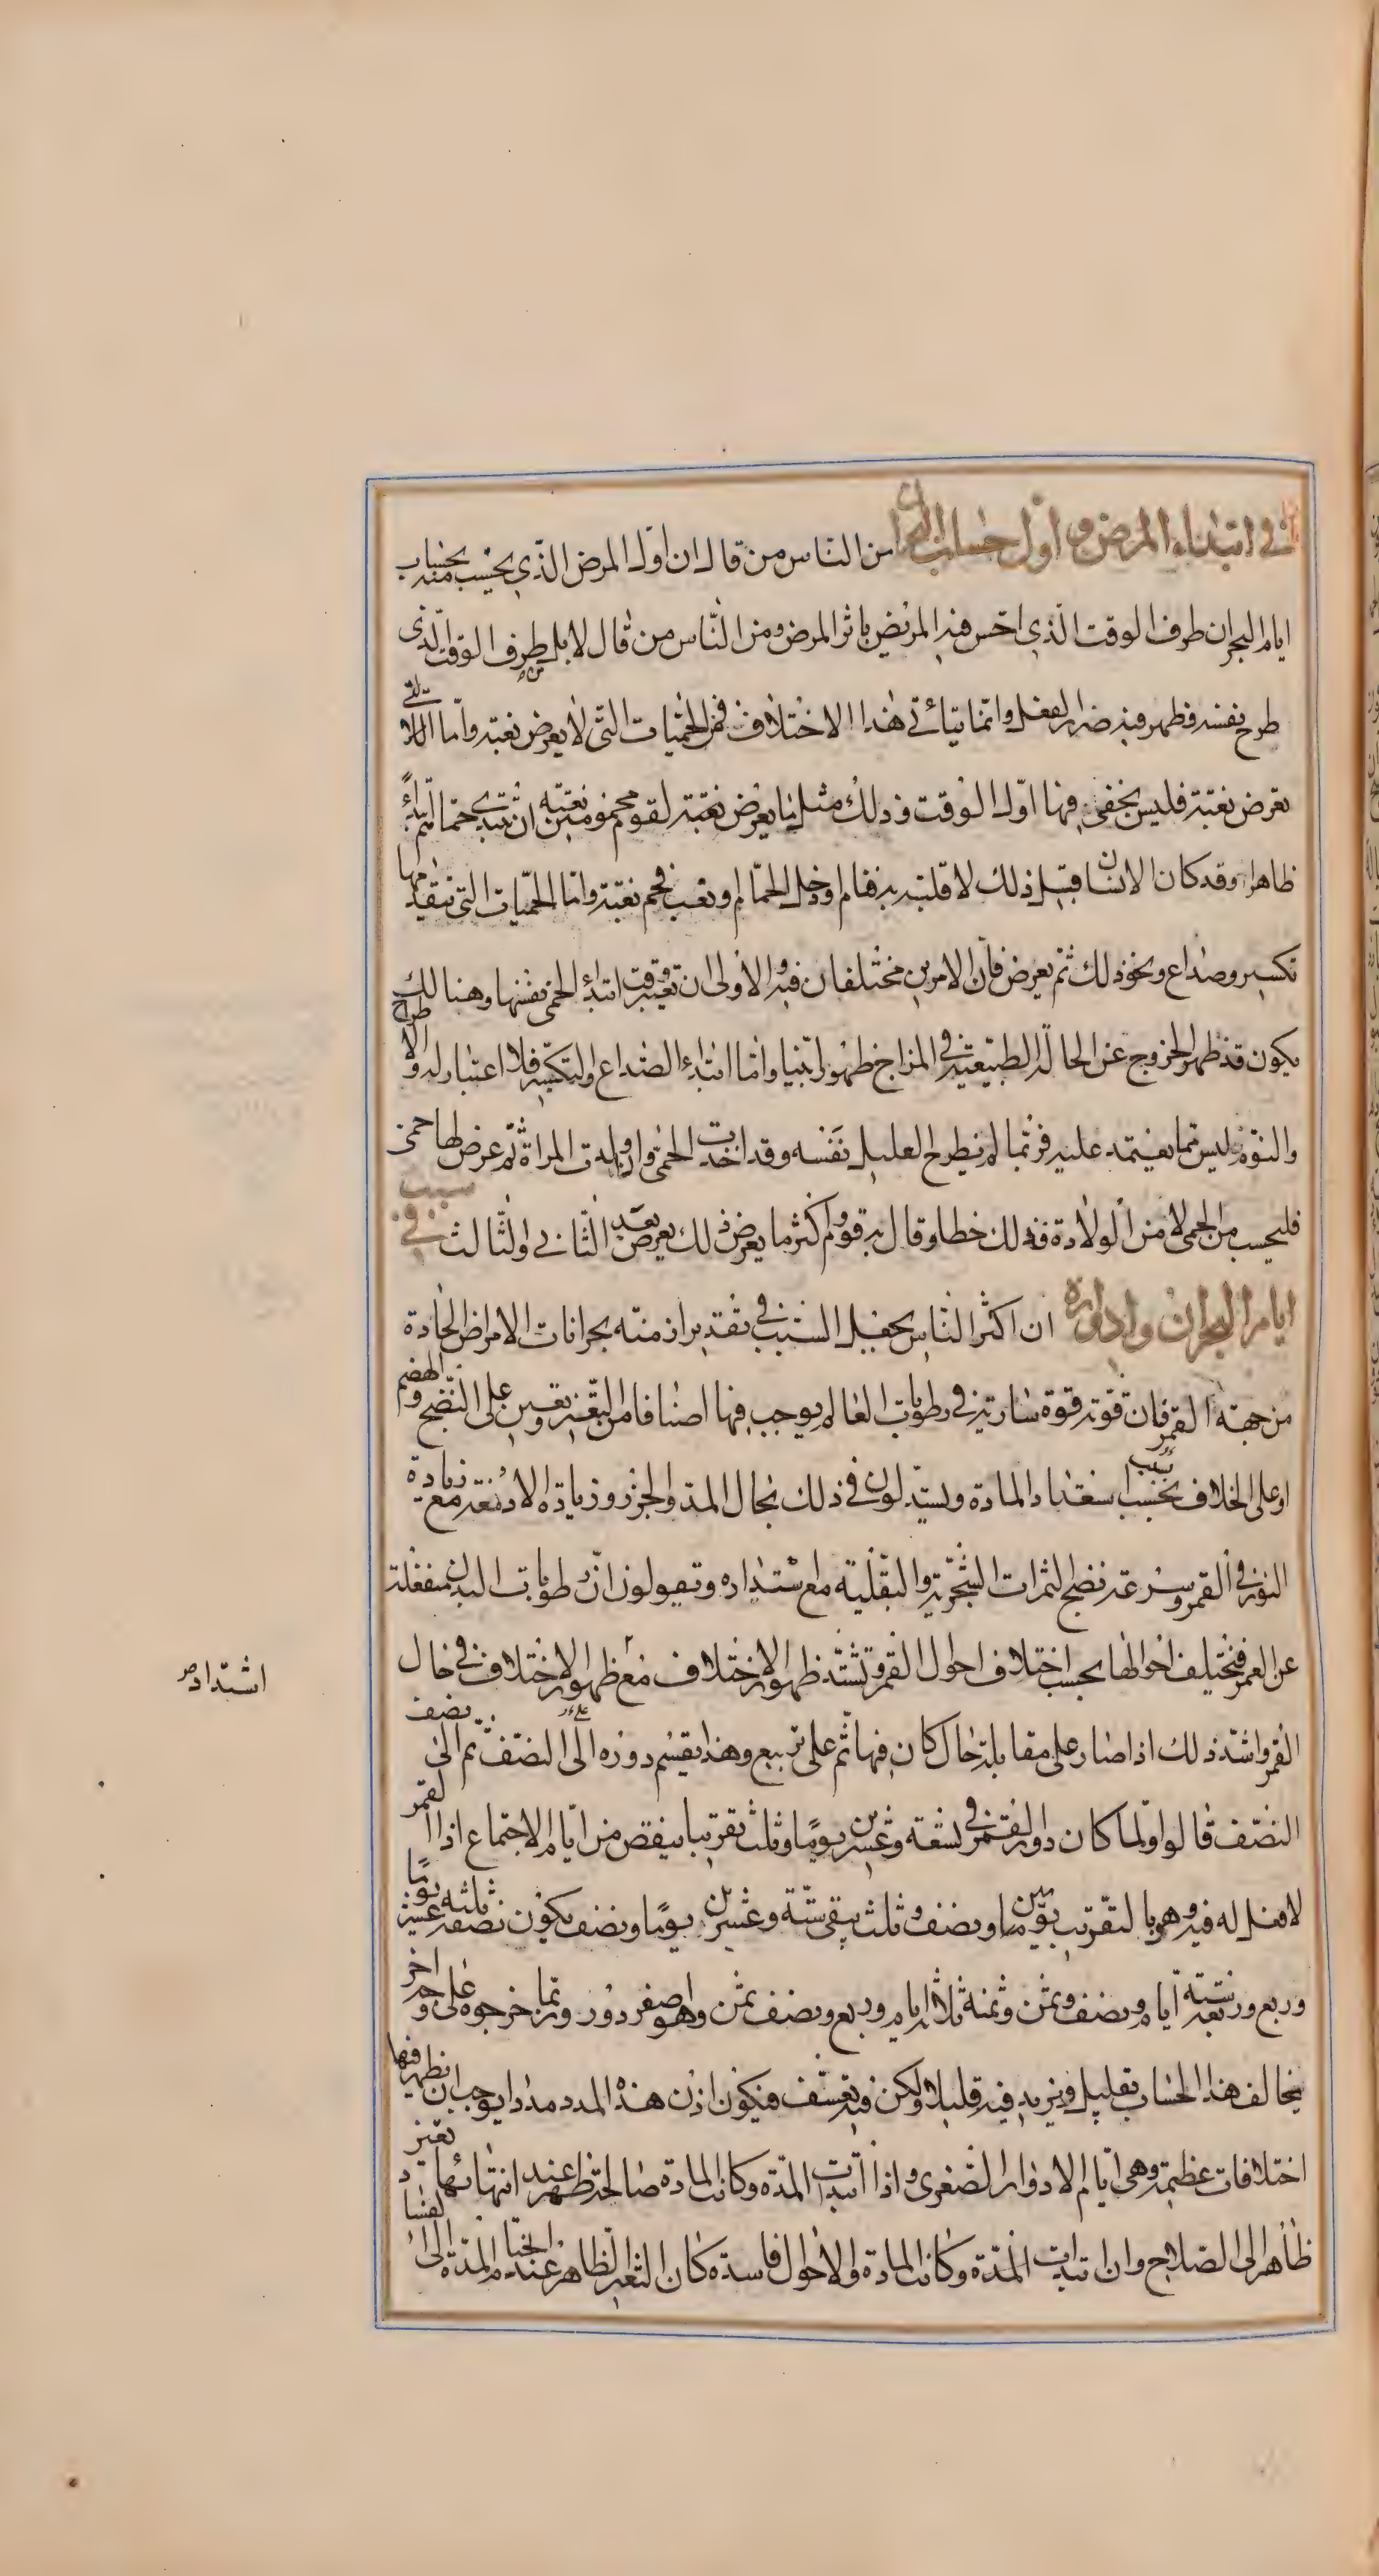 في ابتداء المرض و اول حساب البحران من الناس من قال ان اول المرض الذي يحسب منه بحساب
ايام البحران طرف الوقت الذي احس فيه المريض باثر المرض ومن الناس من قال لا بل طرف الوقت الذى
طرح نفسه فظهر فيه ضرر الفعل وانما يتأتي هذا الاختلاف في الحميات التى لا يعرض بغتة واما اللاتي
تعرض بغتة فليس يخفى فيها اول الوقت وذلك مثل ما يعرض بغتة لقوم محمومين بغتة ان تبتدى حماهم ابتداءً
ظاهرا وقد كان الانسان قبيل ذلك لا قلبة به فنام او دخل الحمام او تعب فحم بغتة واما الحميات التي تتقدمها
تكسير وصداع ونحو ذلك ثم يعرض فان الامرين مختلفان فيه والاولى ان تعتبر وقت ابتداء الحمى نفسها وهنالك
يكون قد ظهر الخروج عن الحالة الطبيعية في المزاج ظهورا بينا واما ابتداء الصداع والتكسر فلا اعتبار له والاطراح
والنوم ليس مما يعتمد عليه فربما لم يطرح العليل نفسه وقد اخذت الحمى واذا ولدت المراة ثم عرض لها حمى
فليحسب من الحمى لا من الولادة فذلك خطا وقال به قوم واكثر ما يعرض ذلك يعرض بعد الثاني والثالث في سبب
ايام البحران وادواره ان اكثر الناس يجعل السبب في تقدير ازمنة بحرانات الامراض الحادة
من جهة القمر فان قوته قوة سارية في رطوبات العالم يوجب فيها اصنافا من التغير ويعين على النضج والهضم
او على الخلاف بحسب استعداد المادة ويستدلون في ذلك بحال المد والجزر وزيادة الادمغة مع زيادة
النور في القمر وسرعة نضج الثمرات الشجرية والبقلية مع استداره ويقولون ان رطوبات البدن منفعلة
عن القمر فيختلف احوالها بحسب اختلاف احوال القمر وتشتد ظهور الاختلاف مع ظهور الاختلاف في حال
اشتداد
القمر واشد ذلك اذا صار على مقابلة حال كان فيها ثم على تربيع وهذا يقسم دوره الى النصف ثم الى نصف
النصف قالوا ولما كان دور القمر في تسعة وعشرين يوما وثلث تقريبا ينقص من ايام الاجتماع اذ القمر
لا فعل له فيه وهو بالتقريب يومين ونصف وثلث يبقى ستة وعشرين يوما ونصف يكون نصفه ثلثة عشر يوما
وربع وربعه ستة ايام ونصف وثمن وثمنه ثلاثة ايام وربع ونصف ثمن وهو اصغر دور وربما خرجوه على وجه اخر
يخالف هذا الحساب بقليل ويزيد فيه قليلا ولكن فيه تعسف فيكون اذن هذه المدد مددا يوجب ان يظهر فيها
اختلافات عظيمة وهي ايام الادوار الصغرى واذا ابتدات المدة وكانت المادة صالحة ظهر عند انتهائها تغير
ظاهر الى الصلاح وان ابتدات المدة وكانت المادة والاحوال فاسدة كان التغير الظاهر عند المدة الى الفساد